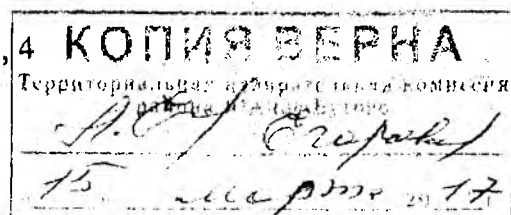 , 4 КОПИЯ ВЕРНА
Территориальная избирательная комиссия
района
15 марта 2017